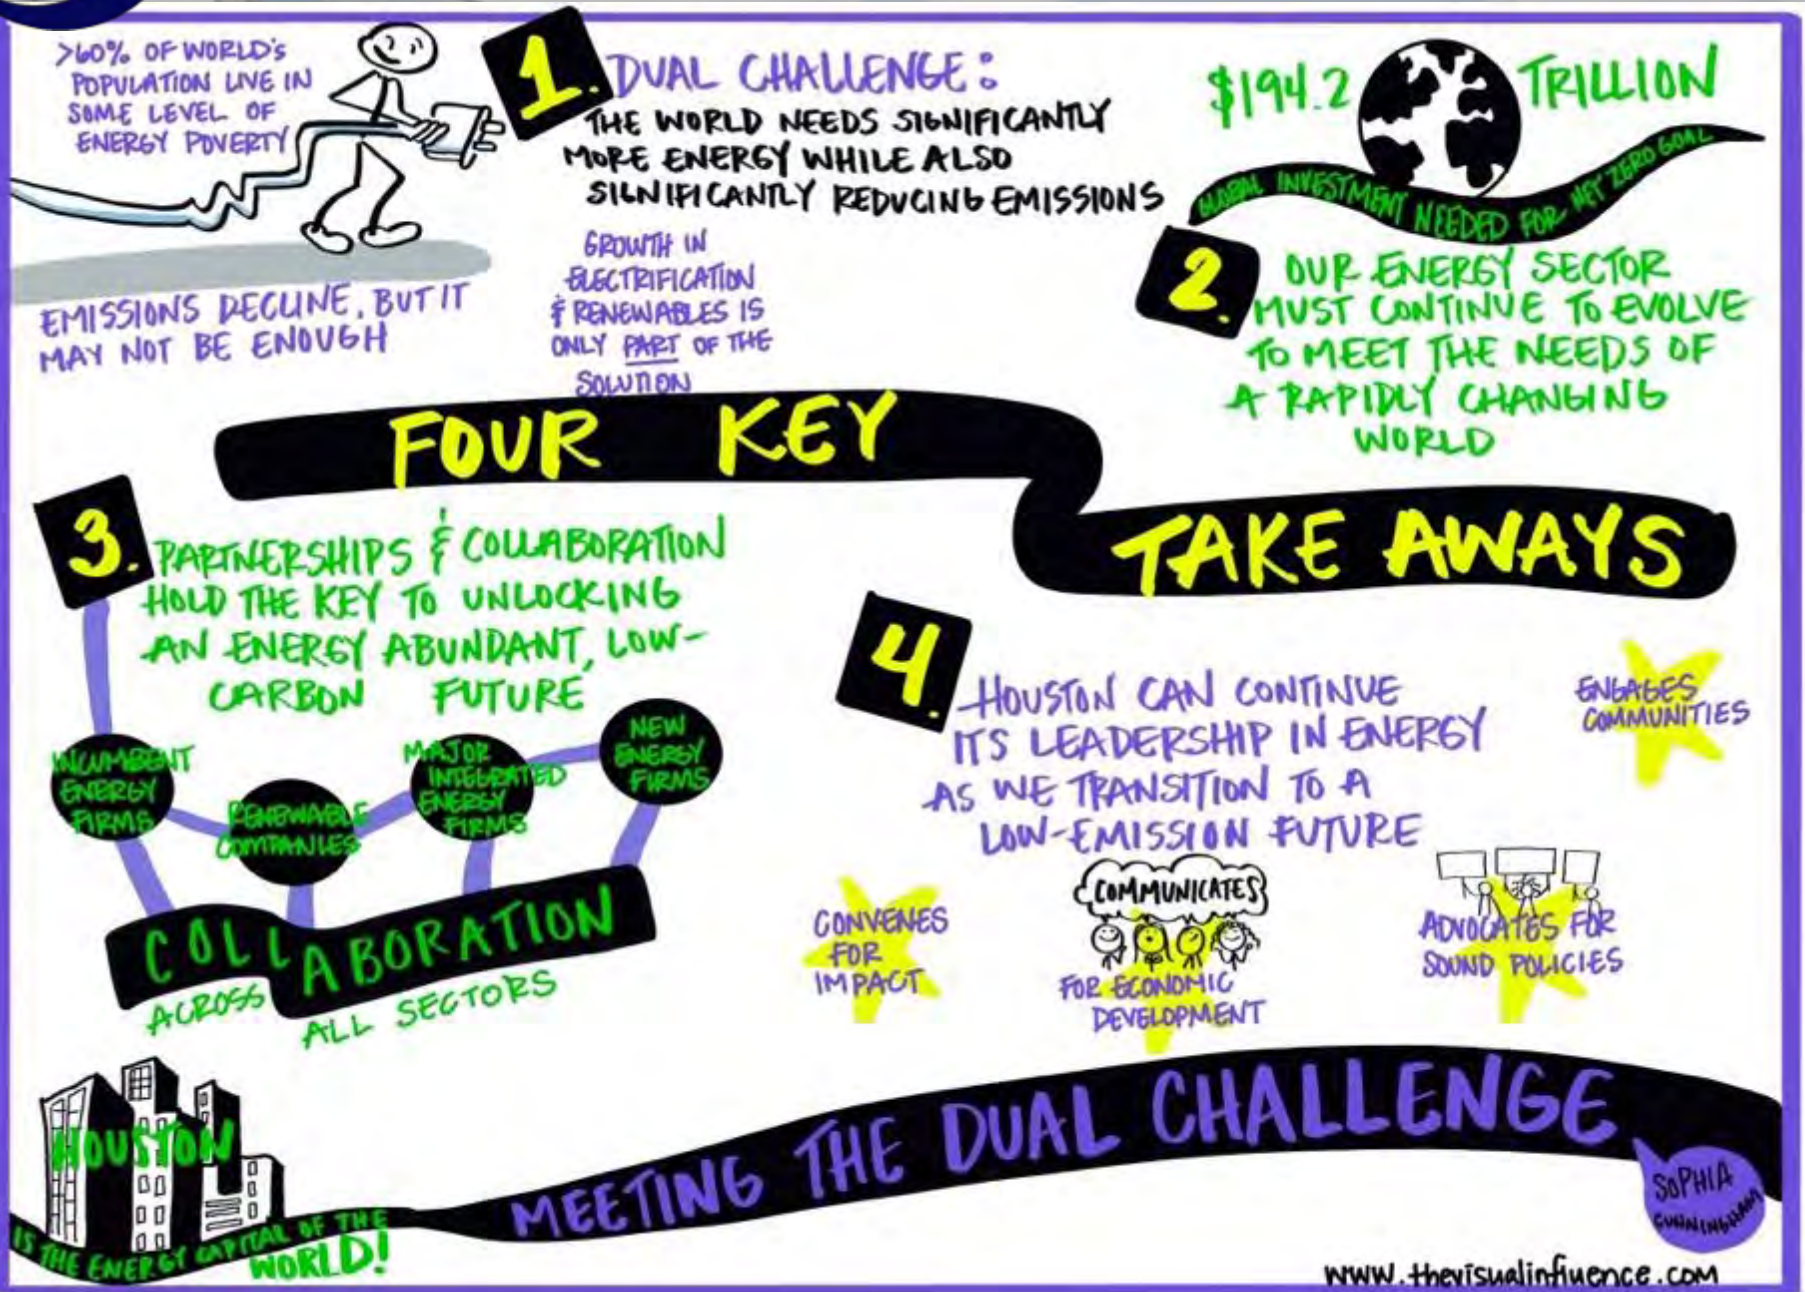 >60% OF WORLD'S
POPULATION LIVE IN
SOME LEVEL OF
ENERGY POVERTY
EMISSIONS DECLINE, BUT IT
MAY NOT BE ENOUGH
1. DUAL CHALLENGE:
THE WORLD NEEDS SIGNIFICANTLY
MORE ENERGY WHILE ALSO
SIGNIFICANTLY REDUCING EMISSIONS
GROWTH IN
ELECTRIFICATION
& RENEWABLES IS
ONLY PART OF THE
SOLUTION
$194.2 TRILLION
GLOBAL INVESTMENT NEEDED FOR NET ZERO GOAL
2. OUR ENERGY SECTOR
MUST CONTINUE TO EVOLVE
TO MEET THE NEEDS OF
A RAPIDLY CHANGING
WORLD
FOUR KEY
TAKE AWAYS
3. PARTNERSHIPS & COLLABORATION
HOLD THE KEY TO UNLOCKING
AN ENERGY ABUNDANT, LOW-
CARBON FUTURE
INCUMBENT
ENERGY
FIRMS
RENEWABLE
COMPANIES
MAJOR
INTEGRATED
ENERGY
FIRMS
NEW
ENERGY
FIRMS
COLLABORATION
ACROSS ALL SECTORS
4. HOUSTON CAN CONTINUE
ITS LEADERSHIP IN ENERGY
AS WE TRANSITION TO A
LOW-EMISSION FUTURE
ENGAGES
COMMUNITIES
CONVENES
FOR
IMPACT
COMMUNICATES
FOR ECONOMIC
DEVELOPMENT
ADVOCATES FOR
SOUND POLICIES
HOUSTON
IS THE ENERGY CAPITAL OF THE
WORLD!
MEETING THE DUAL CHALLENGE
SOPHIA
CUNNINGHAM
www.thevisualinfluence.com